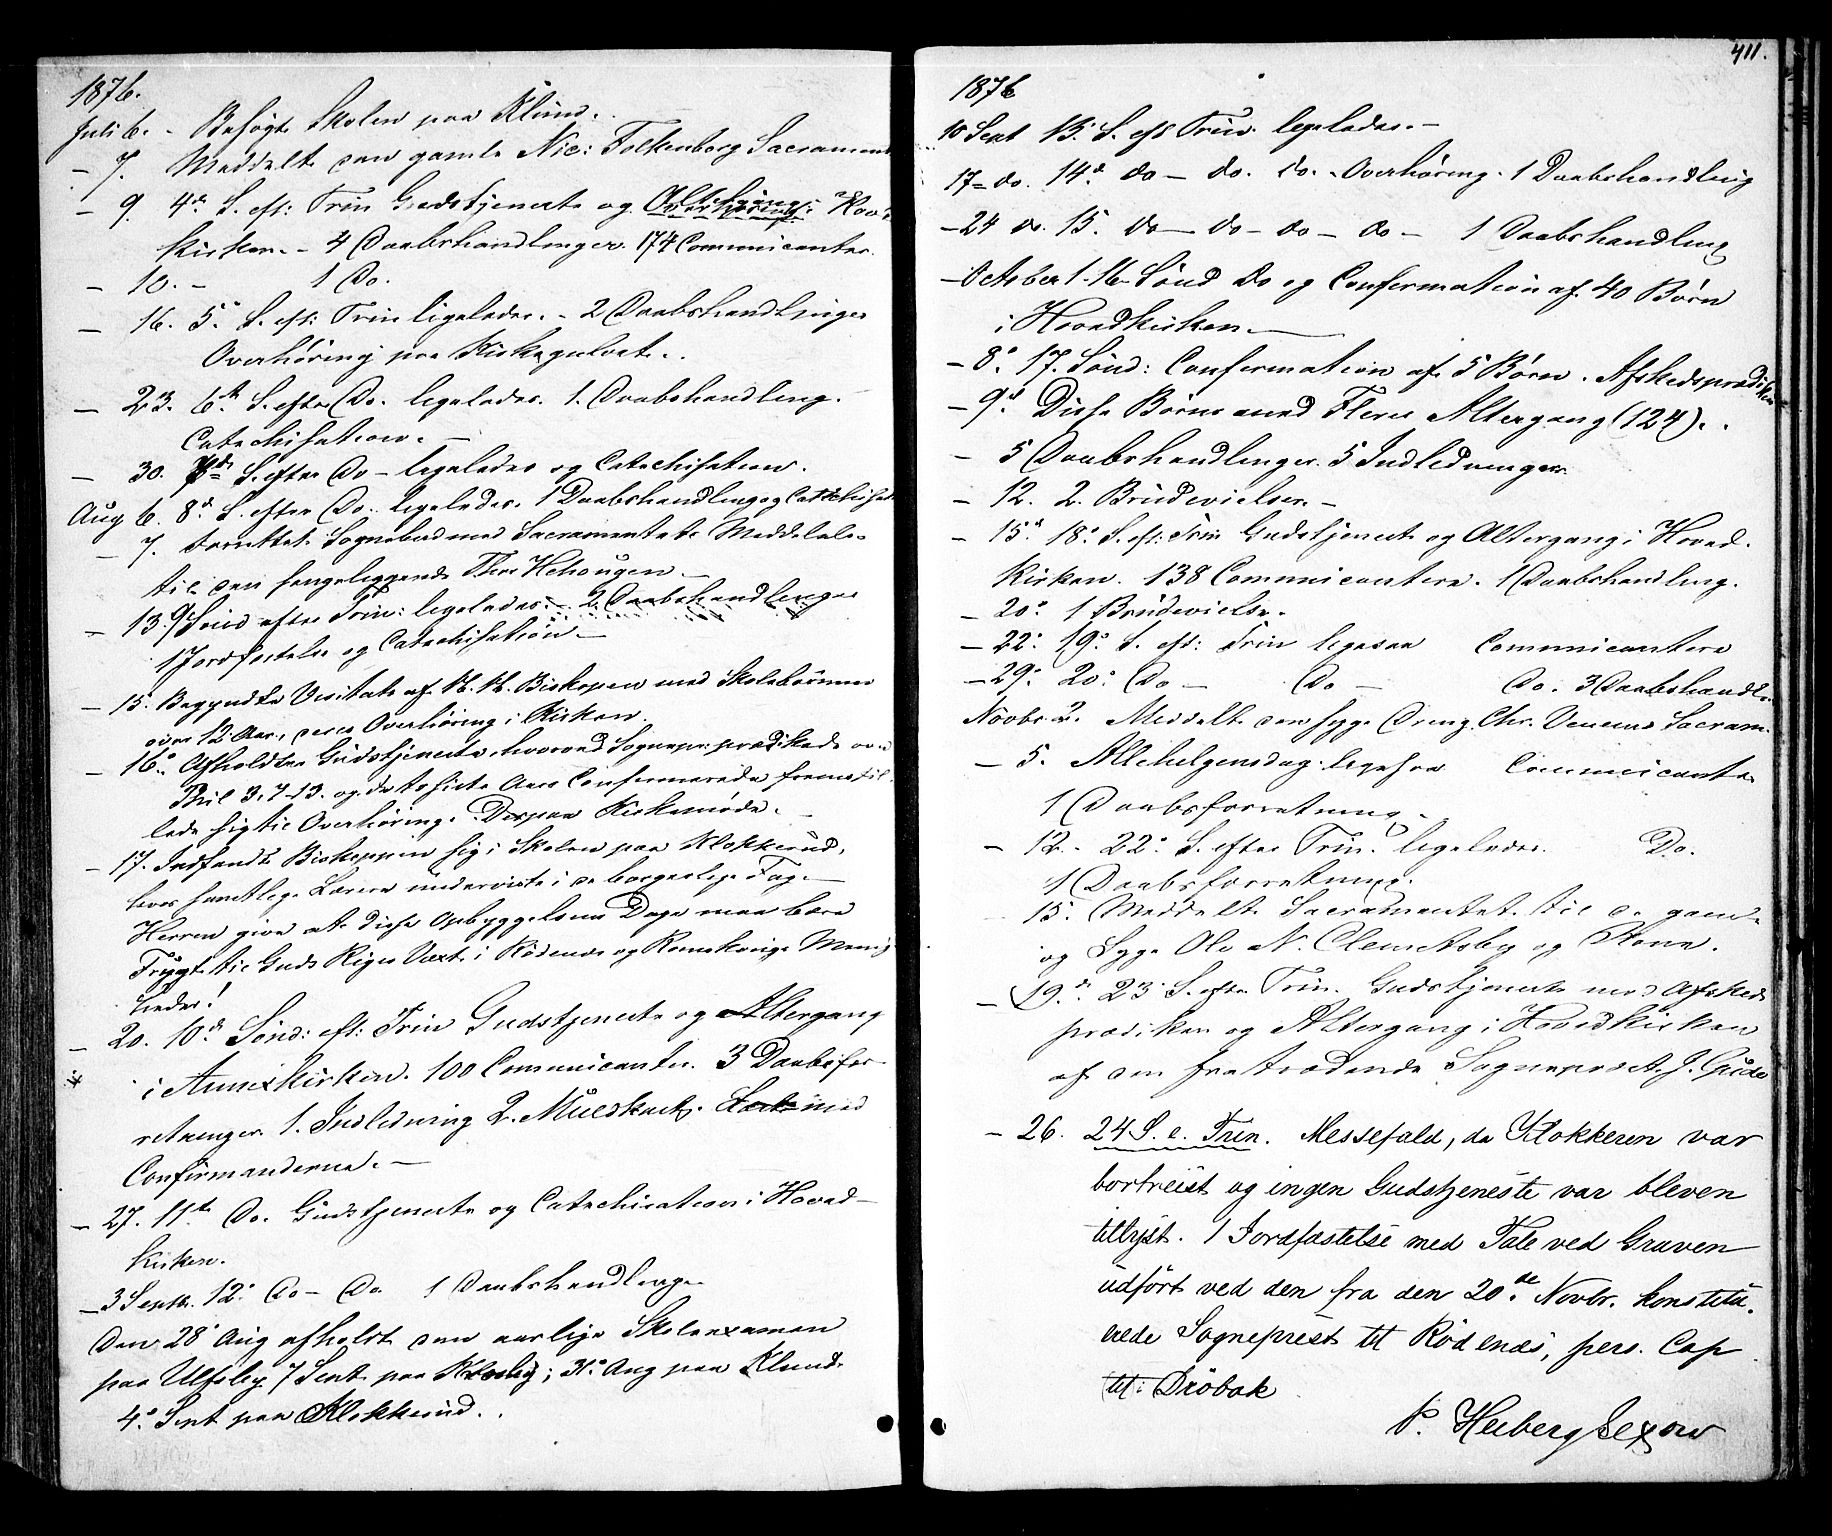 1876.
Juli 6. - Besøgt Skolen paa Klund.
- 7. Meddelt den gamle Nic: Folkenborg Sacrament
- 9. 4de S. eft: Trin Gudstjeneste og Altergang i Hov:
Kirken. - 4 Daabshandlinger. 174 Communicanter.
- 10. - 1 Do.
- 16. 5. S. eft: Trin ligeledes. - 2 Daabshandlinger
Overhøring paa Kirkegulvet.
- 23. 6te S. efter Do. ligeledes. 1. Daabshandling.
Catechisation. -
- 30. 7de S. efter Do - ligeledes og Catechisation.
Aug 6. 8de S. efter Do. ligeledes. 1 Daabshandling og Catechisat
- 7. Forrettet Sognebud med Sacramentets Meddelelse
til den sengeliggende Thor Hehougen -
- 13. 9 Sönd efter Trin: ligeledes. - 2 Daabshandlinger
1 Jordfæstelse og Catechisation. -
- 15. Begyndte Visitats af H. H. Biskopen med Skolebörnene
over 12 Aar, deres Overhøring i Kirken.
- 16. Afholdtes Gudstjeneste, hvorved Sognepr: prædikede over
Phil 3, 7-13. og de to sidste Aars Confirmerede fremstil
lede sig til Overhøring. Derpaa Kirkemøde. -
- 17. Indfandt Biskoppen sig i Skolen paa Klokkerud,
hvor samtlige Lærere underviste i de borgerlige Fag. -
Herren give at disse Opbyggelsens Dage maa bære
Frugt til Guds Riges Vext i Rödenes og Romskougs Menig
heder!
- 20. 10de Sönd: eft: Trin Gudstjeneste og Altergang
i Annexkirken. 100 Communicanter. 3 Daabsfor
retninger. 1. Indledning 2. Muldkast. Læst med
Confirmanderne. -
- 27. 11te Do. Gudstjeneste og Catechisation i Hoved-
kirken.
- 3 Septbr. 12. Do - Do 1 Daabshandling
Den 28 Aug afholdt den aarlige Skoleexamen
paa Ulfsby 7 Sept paa Krosby; 31. Aug paa Klund.
4. Sept paa Klokkerud.
411.
1876
10 Sept 13. S. eft Trin. ligeledes. -
17 - do. 14de do - do. do. - Overhøring. 1 Daabshandling
- 24 do. 15. do - do - do - do - 1 Daabshandling
- October 1. 16 Sönd Do og Confirmation af 40 Børn
i Hovedkirken. -
- 8. 17. Sönd: Confirmation af 5 Børn. Afskedsprædiken
- 9de. Disse Børns med Fleres Altergang (124).
- 5 Daabshandlinger. 5 Indledninger.
- 12. 2. Brudevielser. -
- 15de 18. S. eft: Trin Gudstjeneste og Altergang i Hoved.
Kirken. 138 Communicantere. 1 Daabshandling.
- 20. 1 Brudevielse.
- 22. 19. S. eft: Trin ligesaa Communicantere
- 29. 20. Do - Do - Do. 3 Daabshandl.
Novbr. 2. Meddelt den syge Dreng Chr. Sacram.
- 5. Allehelgensdag. ligesaa Communicanter
1 Daabsforretning.
- 12. - 22. S. efter Trin. ligeledes. Do.
1 Daabsforretning.
15. Meddelt Sacramentet til de gamle
og Syge Ole N. Clemetsby og Kone.
- 19de. 23 S. efter Trin. Gudstjeneste med Afskeds
prædiken og Altergang i Hovedkirken
af den fratrædende Sogneprest J. Gude
- 26. 24 S. e. Trin. Messefald, da Klokkeren var
bortreist og ingen Gudstjeneste var bleven
tillyst. 1 Jordfæstelse med Tale ved Graven
udført ved den fra den 20de Novbr. konstitu.
erede Sogneprest til Rödenæs, pers. Cap
til: Dröbak
P. Heiberg Sexow